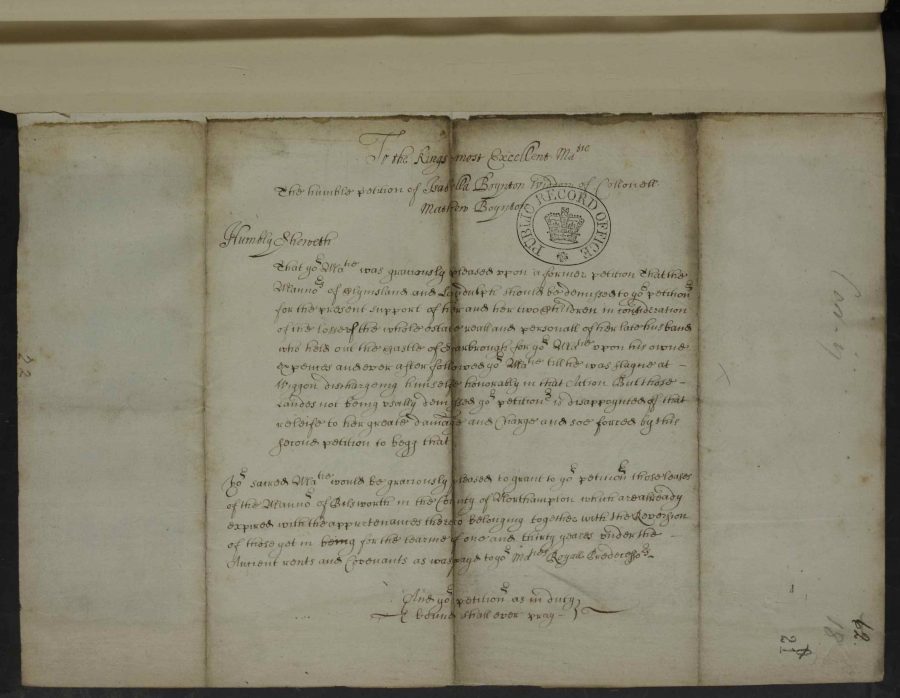 To the Kings most Excellent Ma^tie
The humble petition of Isabella Boynton Widdow of Collonell
Mathew Boynton
PUBLIC RECORD OFFICE
Humbly Sheweth
That yo^r Ma^tie was graciously pleased upon a former petition That the
Manno^rs of Clymsland and Landulph should be demised to yo^r petition^r
for the present support of her and her two Children in consideration
of the losse of the whole estate reall and personall of her late husband
who held out the Castle of Scarbrough for yo^r Ma^tie upon his owne
expences and ever after followed yo^r Ma^tie till he was slayne at
Wiggon dischargeing himselfe honorably in that Action But those
Landes not being really demised yo^r petition^r is disappoynted of that
releife to her greate damage and Charge and soe forced by this
second petition to begg that
Yo^r sacred Ma^tie would be graciously pleased to grant to yo^r petition^r those leases
of the Manno^r of Blisworth in the County of Northampton which are already
expired with the appurtenances thereto belonging together with the Reversion
of those yet in being for the tearme of one and thirty yeares under the
Ancient rents and Covenants as was payd to yo^r Ma^ties Royall Predecesso^rs
And yo^r petition^r as in duty
bound shall ever pray
22
62
18
21